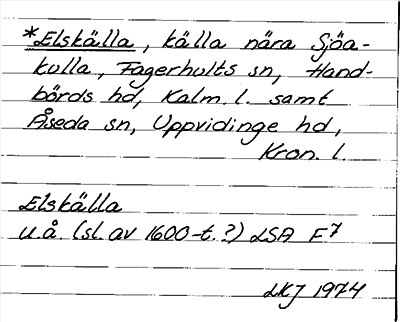 *Elskälla, källa nära Sjöa-
kulla, Fagerhults sn, Hand-
börds hd, Kalm. l. samt
Åseda sn, Uppvidinge hd,
Kron. l.
Elskälla
u.å. (sl. av 1600-t.?) LSA F7
LKJ 1974